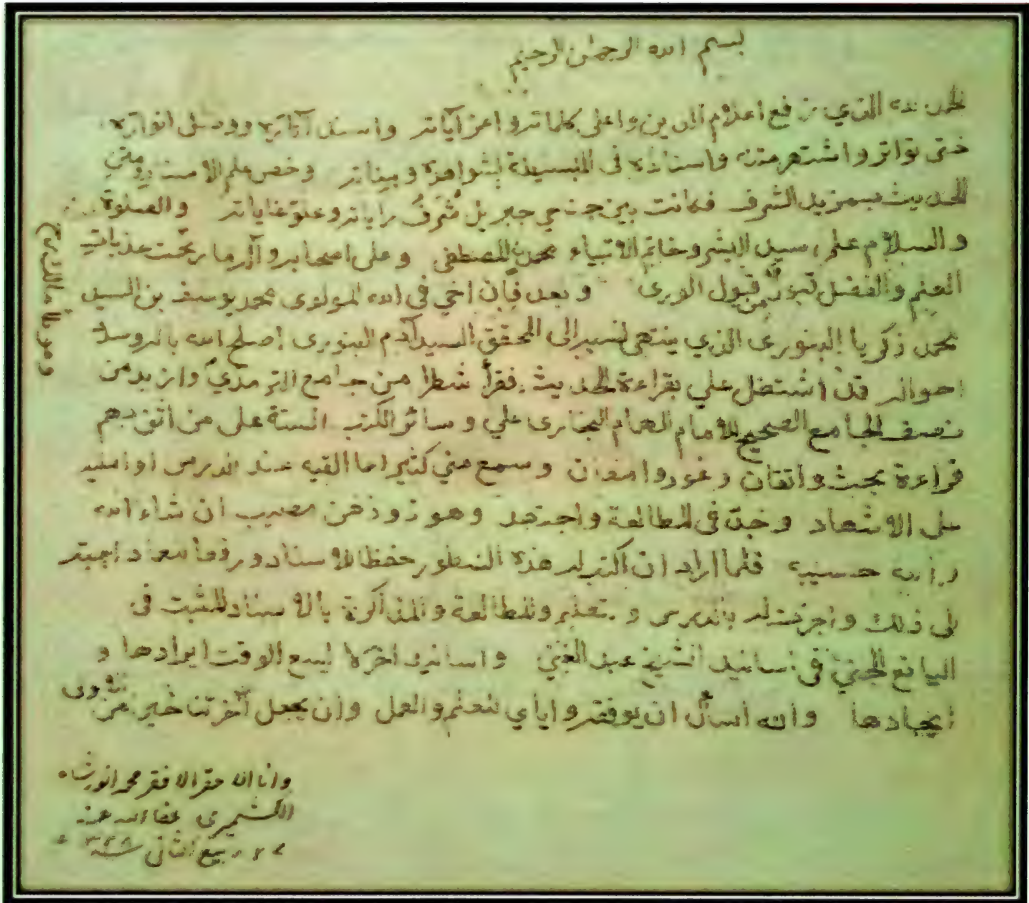 بسم الله الرحمن الرحيم
الحمد لله الذي رفع اعلام الدين واعلى كلماته واعز آياته واسند آثاره ووصل انواره
حتى تواتر واشتهر متنه واسناده في البسيطة بشواهده وبيناته وخص علم الاسناد ومتن
الحديث بمزيد الشرف فكانت بين جنبي جبريل شرف راياته وعلو غاياته والصلوة
والسلام على سيد البشر وخاتم الانبياء محمد المصطفى وعلى اصحابه وآله ما رنحت عذبات
العلم والفضل قبول الورى وبعد فإن اخي في الله المولوى محمد يوسف بن السيد
محمد زكريا البنورى الذي ينتهى نسبه إلى المحقق السيد آدم البنورى اصلح الله بالہ وسدد
احواله قد اشتغل علي بقراءة الحديث فقرأ شطرا من جامع الترمذي وازيد من
نصف الجامع الصحيح للامام الهمام البخارى علي وسائر الكتب الستة على من اثق بهم
قراءة بحث واتقان وغور وامعان وسمع مني كثيرا مما القيه عند الدرس او امليه
على الاشهاد وجد في المطالعة واجتهد وهو ذو ذهن مصيب ان شاء الله
ورأيه حسيب فلما اراد ان اكتب له هذه السطور حفظا للاسناد ورفعا لعماد اجبته
الى ذلك واجزت له بالدرس والتعليم والمطالعة والمذاكرة بالاسناد المثبت في
اليانع الجني في اسانيد الشيخ عبد الغني واسانيد اخر لا يسع الوقت ايرادها و
ايجادها والله اسأل ان يوفقه واياي للعلم والعمل وان يجعل آخرتنا خير من الاولى
وانا الاحقر الافقر محمد انور شاه
الكشميرى عفا الله عنه
ربيع الثاني